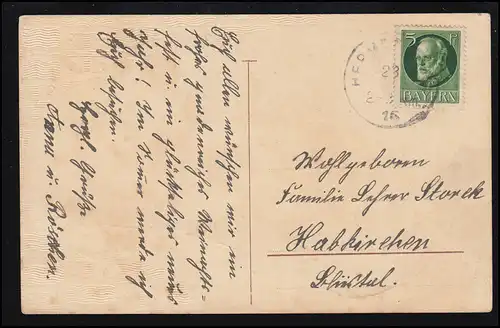 Euch allen wünschen wir ein
frohes gnadenreiches Weihnachts-
fest u. ein glückseliges neues
Jahr! Im Januar werde ich
Euch besuchen.
Herzl. Grüße
Anna u. Röschen.
HERM
5 Pf
BAYERN
15
Wohlgeboren
Familie Lehrer Storck
Habkirchen
Bliestal.